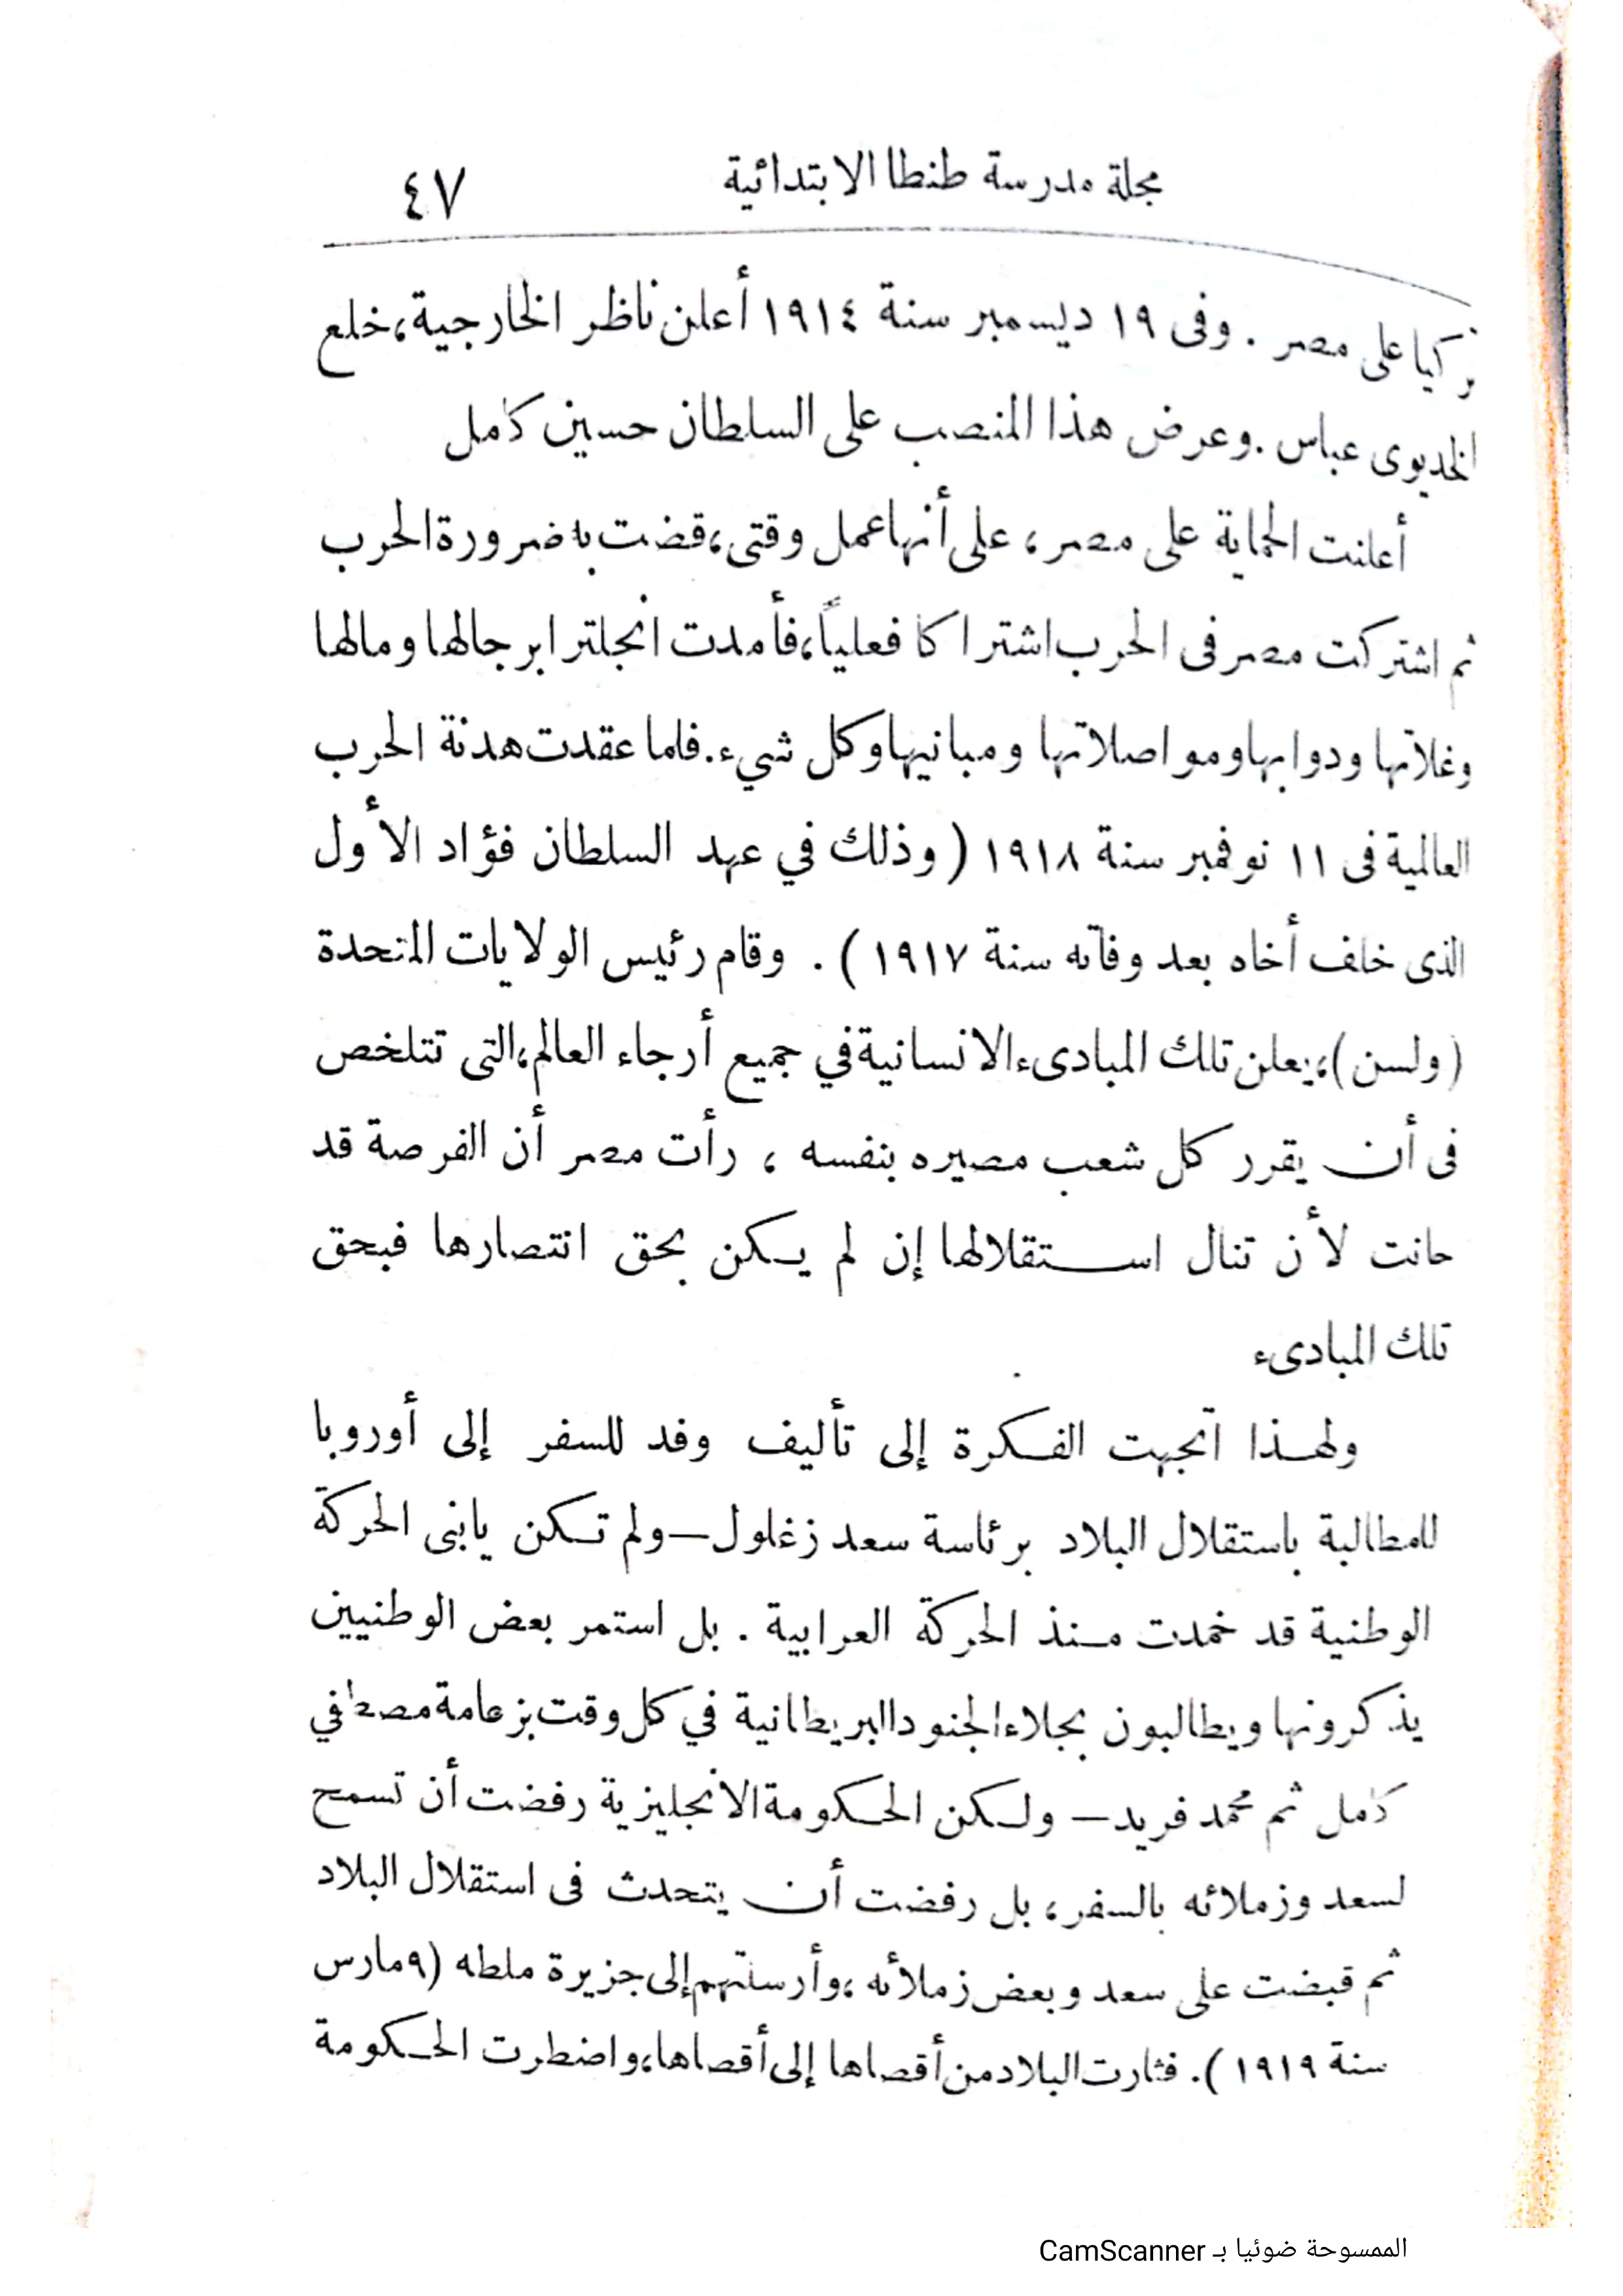 مجلة مدرسة طنطا الابتدائية ٤٧
تركيا على مصر . وفى ١٩ ديسمبر سنة ١٩١٤ أعلن ناظر الخارجية، خلع
الخديوى عباس . وعرض هذا المنصب على السلطان حسين كامل
أعلنت الحماية على مصر ، على أنها عمل وقتى، قضت به ضرورة الحرب
ثم اشتركت مصر فى الحرب اشتراكا فعلياً، فأمدت انجلترا برجالها ومالها
وغلاتها ودوابها ومواصلاتها ومبانيها وكل شيء. فلما عقدت هدنة الحرب
العالمية فى ١١ نوفمبر سنة ١٩١٨ ( وذلك في عهد السلطان فؤاد الأول
الذى خلف أخاه بعد وفاته سنة ١٩١٧ ) . وقام رئيس الولايات المتحدة
( ولسن )، يعلن تلك المبادىء الانسانية في جميع أرجاء العالم، التى تتلخص
فى أن يقرر كل شعب مصيره بنفسه ، رأت مصر أن الفرصة قد
حانت لأن تنال استقلالها إن لم يكن بحق انتصارها فبحق
تلك المبادىء
ولهذا اتجهت الفكرة إلى تأليف وفد للسفر إلى أوروبا
للمطالبة باستقلال البلاد برئاسة سعد زغلول — ولم تكن يابنى الحركة
الوطنية قد خمدت منذ الحركة العرابية . بل استمر بعض الوطنيين
يذكرونها ويطالبون بجلاء الجنود البريطانية في كل وقت بزعامة مصطفي
كامل ثم محمد فريد — ولكن الحكومة الانجليزية رفضت أن تسمح
لسعد وزملائه بالسفر ، بل رفضت أن يتحدث فى استقلال البلاد
ثم قبضت على سعد وبعض زملائه ، وأرسلتهم إلى جزيرة ملطه ( ٩ مارس
سنة ١٩١٩ ) . فثارت البلاد من أقصاها إلى أقصاها، واضطرت الحكومة
الممسوحة ضوئيا بـ CamScanner